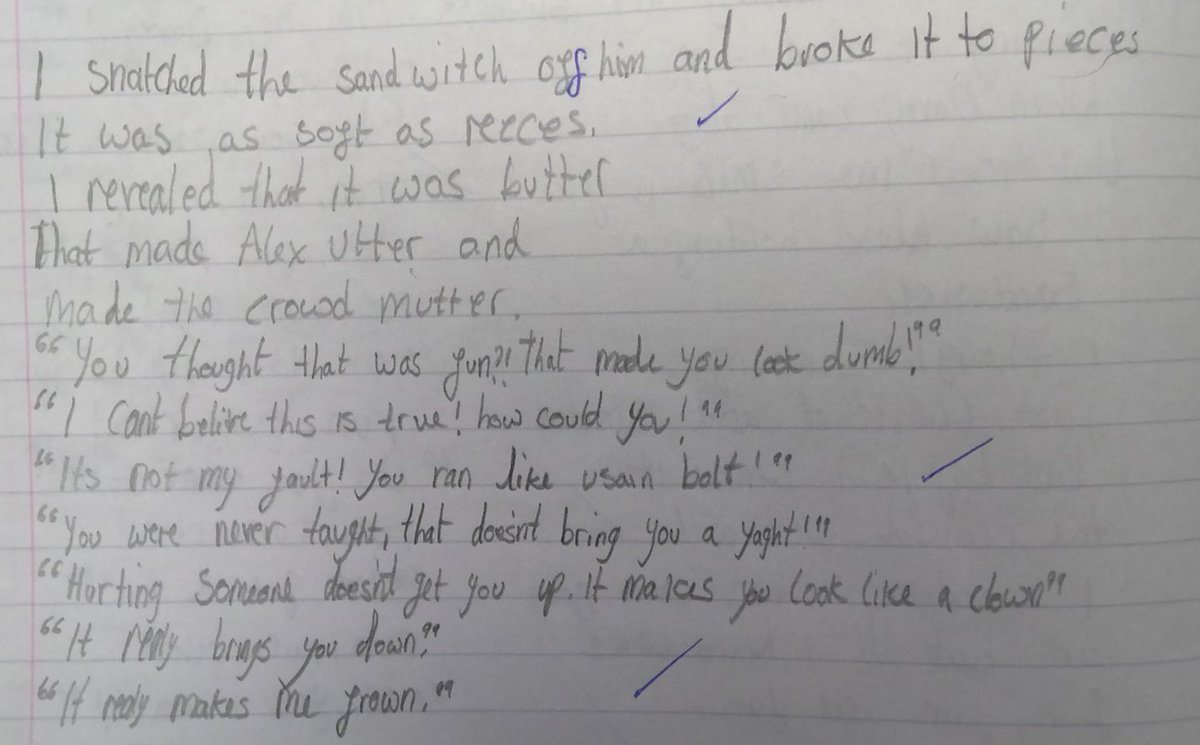 I snatched the sandwitch off him and broke it to pieces
It was as soft as reeces.
I revealed that it was butter
That made Alex Utter and
made the crowd mutter.
“You thought that was fun?! That made you look dumb!”
“I Cant belive this is true! how could you!”
“Its not my fault! You ran like usain bolt!”
“You were never taught, that doesn't bring you a yaght!”
“Hurting Someone doesn't get you up. It makes you look like a clown”
“It realy brings you down.”
“It realy makes me frown.”